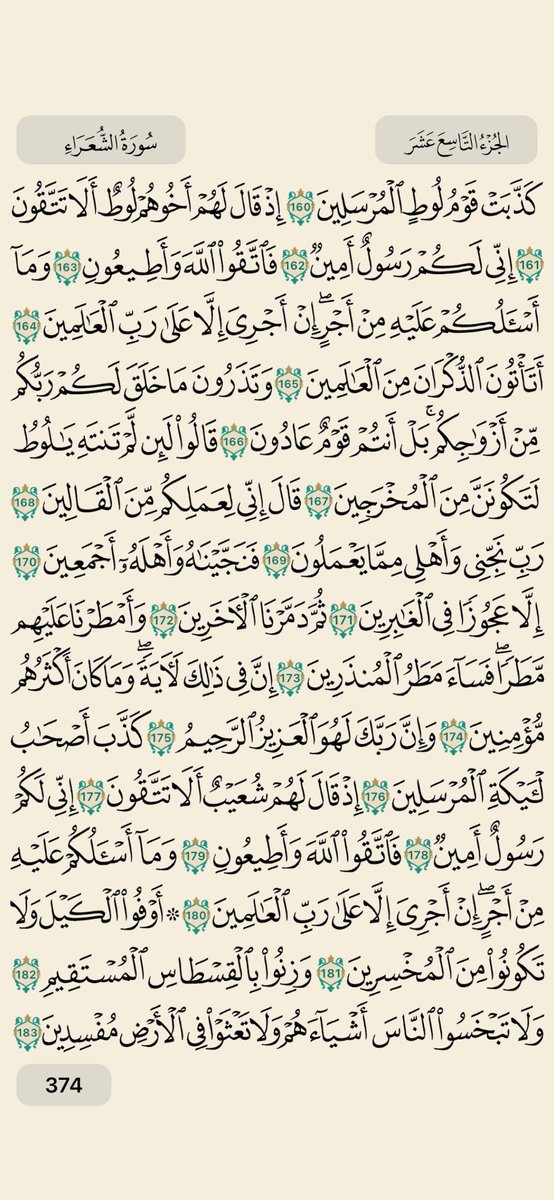 الجُزْءُ التَّاسِعَ عَشَرَ
سُورَةُ الشُّعَرَاءِ
كَذَّبَتْ قَوْمُ لُوطٍ ٱلْمُرْسَلِينَ 160 إِذْ قَالَ لَهُمْ أَخُوهُمْ لُوطٌ أَلَا تَتَّقُونَ
161 إِنِّى لَكُمْ رَسُولٌ أَمِينٌ 162 فَٱتَّقُوا۟ ٱللَّهَ وَأَطِيعُونِ 163 وَمَآ
أَسْـَٔلُكُمْ عَلَيْهِ مِنْ أَجْرٍ ۖ إِنْ أَجْرِىَ إِلَّا عَلَىٰ رَبِّ ٱلْعَـٰلَمِينَ 164
أَتَأْتُونَ ٱلذُّكْرَانَ مِنَ ٱلْعَـٰلَمِينَ 165 وَتَذَرُونَ مَا خَلَقَ لَكُمْ رَبُّكُم
مِّنْ أَزْوَٰجِكُم ۚ بَلْ أَنتُمْ قَوْمٌ عَادُونَ 166 قَالُوا۟ لَئِن لَّمْ تَنتَهِ يَـٰلُوطُ
لَتَكُونَنَّ مِنَ ٱلْمُخْرَجِينَ 167 قَالَ إِنِّى لِعَمَلِكُم مِّنَ ٱلْقَالِينَ 168
رَبِّ نَجِّنِى وَأَهْلِى مِمَّا يَعْمَلُونَ 169 فَنَجَّيْنَـٰهُ وَأَهْلَهُۥٓ أَجْمَعِينَ 170
إِلَّا عَجُوزًا فِى ٱلْغَـٰبِرِينَ 171 ثُمَّ دَمَّرْنَا ٱلْـَٔاخَرِينَ 172 وَأَمْطَرْنَا عَلَيْهِم
مَّطَرًا ۖ فَسَآءَ مَطَرُ ٱلْمُنذَرِينَ 173 إِنَّ فِى ذَٰلِكَ لَـَٔايَةً ۖ وَمَا كَانَ أَكْثَرُهُم
مُّؤْمِنِينَ 174 وَإِنَّ رَبَّكَ لَهُوَ ٱلْعَزِيزُ ٱلرَّحِيمُ 175 كَذَّبَ أَصْحَـٰبُ
لْـَٔيْكَةِ ٱلْمُرْسَلِينَ 176 إِذْ قَالَ لَهُمْ شُعَيْبٌ أَلَا تَتَّقُونَ 177 إِنِّى لَكُمْ
رَسُولٌ أَمِينٌ 178 فَٱتَّقُوا۟ ٱللَّهَ وَأَطِيعُونِ 179 وَمَآ أَسْـَٔلُكُمْ عَلَيْهِ
مِنْ أَجْرٍ ۖ إِنْ أَجْرِىَ إِلَّا عَلَىٰ رَبِّ ٱلْعَـٰلَمِينَ 180 * أَوْفُوا۟ ٱلْكَيْلَ وَلَا
تَكُونُوا۟ مِنَ ٱلْمُخْسِرِينَ 181 وَزِنُوا۟ بِٱلْقِسْطَاسِ ٱلْمُسْتَقِيمِ 182
وَلَا تَبْخَسُوا۟ ٱلنَّاسَ أَشْيَآءَهُمْ وَلَا تَعْثَوْا۟ فِى ٱلْأَرْضِ مُفْسِدِينَ 183
374